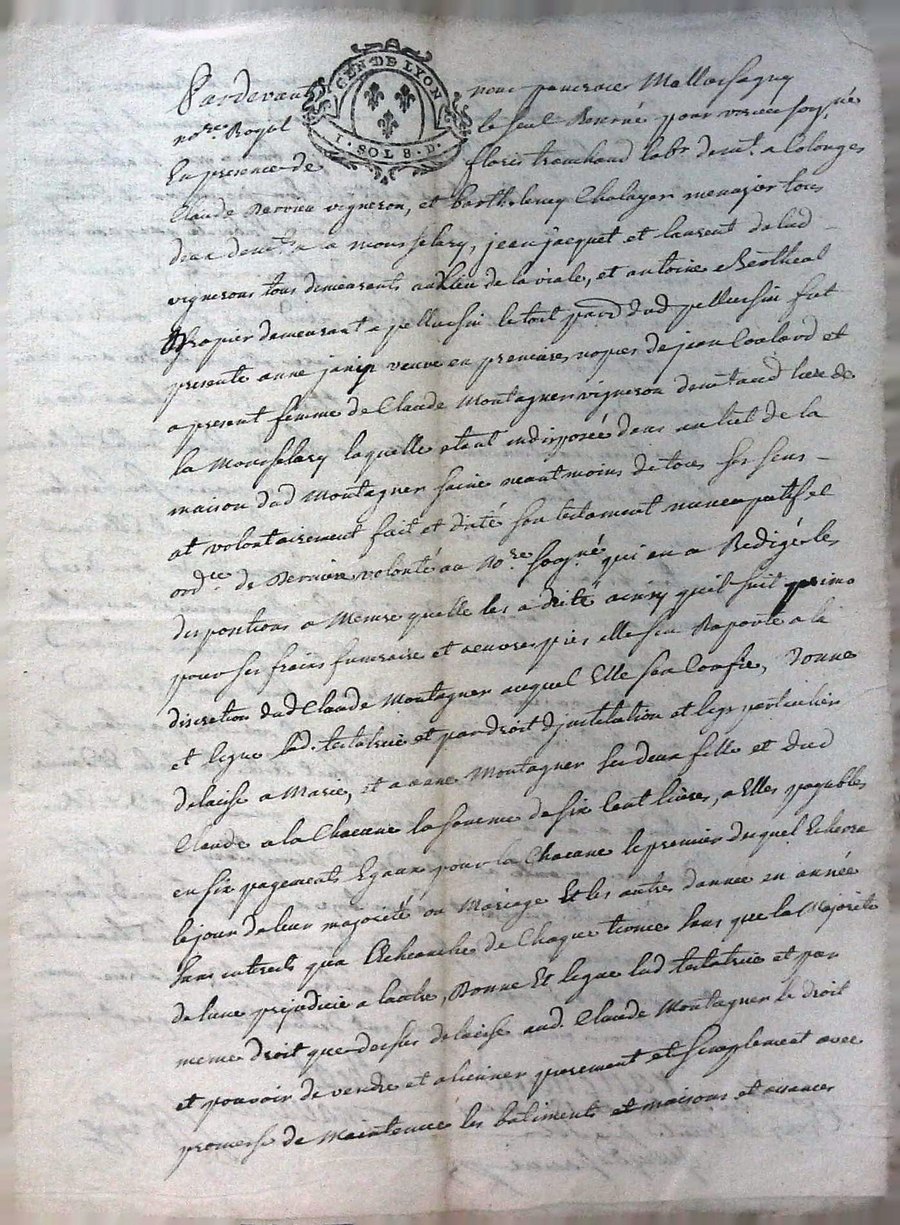 GEN. DE LYON
1. SOL 8. D.
Pardevant nous pancrace
no.re Royal le seul Reservé pour vorice soug.né
En presence de fleuris tranchand lab.r dem.t a Colonges
Claude Dervieu vigneron, et Barthelemy Chalayer menager tous
deux dem.ts a mousselary, jean jacquet et laurent dalud
vignerons tous demeurants au lieu de la viale, et antoine
fripier demeurant a pellussin le tout par.se dud pellussin fut
presente anne janin veuve en premieres nopces de jean Coulaud et
a present femme de Claude Montagner vigneron dem.t aud lieu de
la Mousselary laquelle etant indisposée dans un lict de la
maison dud Montagner saine neantmoins de tous ses sens
at volontairement fait et dicté son testament nuncupatif et
ord.ce de Derniere volonté au No.re soug.né qui en a Redigé les
dispositions a Mesure quelle les a dicté ainsy quil suit primo
pour ses frais funeraire et oeuvres pies elle sen Raporte a la
discretion dud Claude Montagner auquel Elle sen Confie, Donne
et legue lad. testatrice et par droit djnstitution et legs particulier
delaisse a Marie, et a anne Montagner ses deux fille et dud
Claude a la Chacune la somme de six Cent livres, a Elles payables
en six payements Egaux pour la Chacune le premier duquel Echerra
le jour de leur majorité ou Mariage Et les autre dannee en année
sans interets qua Echeanche de Chaque terme sans que la Majorité
de lune prejudicie a lautre, Donne Et legue lad testatrice et par
meme droit que dessus delaisse aud. Claude Montagner le droit
et pouvoir de vendre et alienner purement et simplement avec
promesse de Maintenir les batiments et maisons et aisances